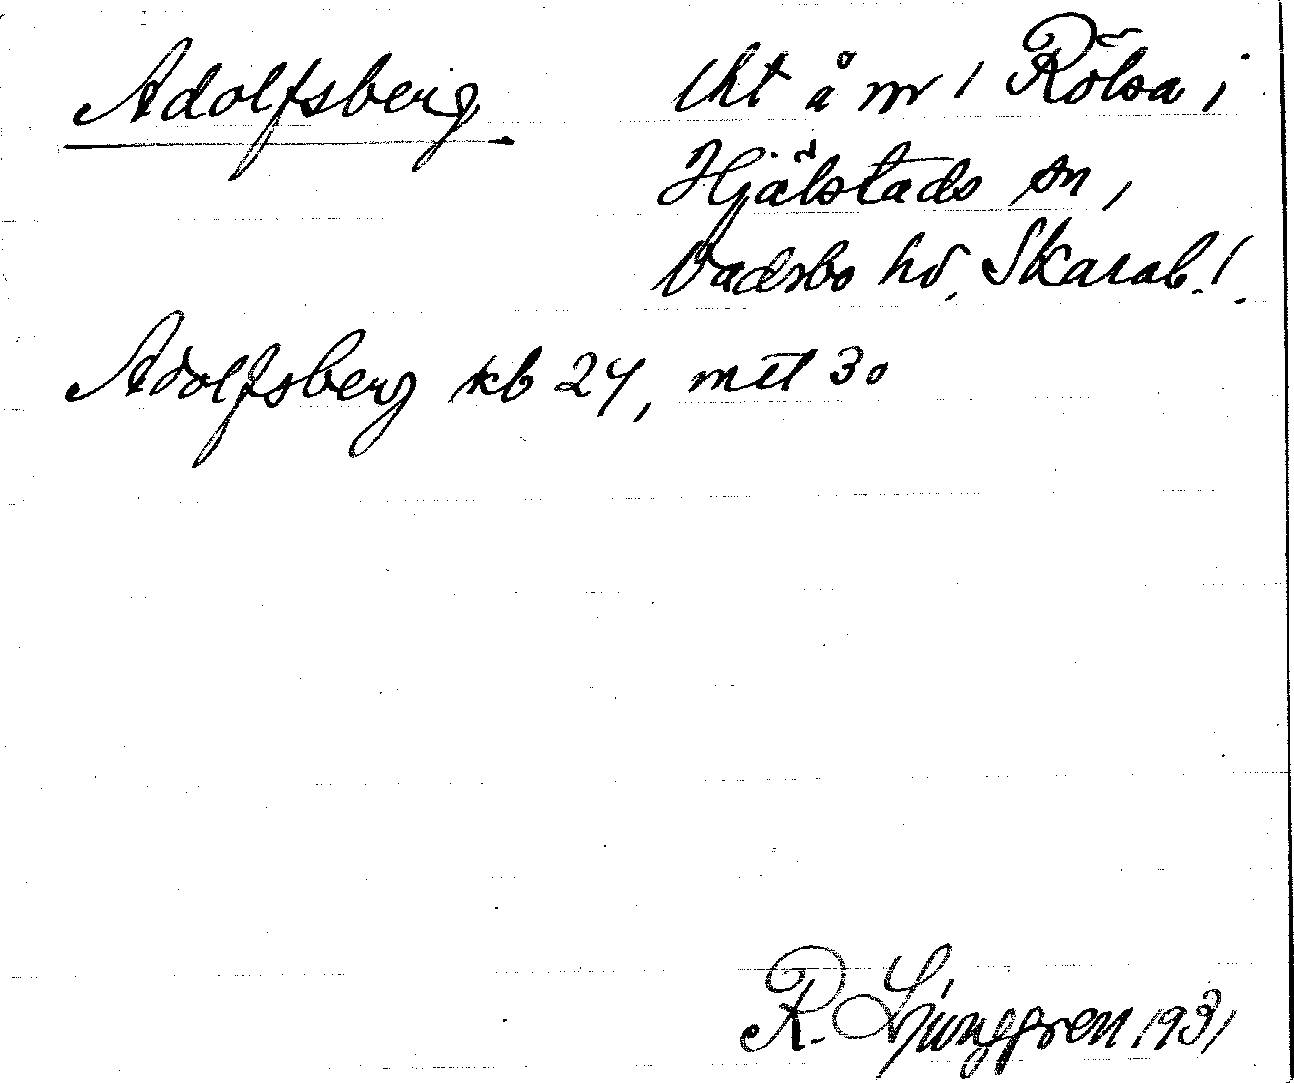 Adolfsberg
lht å nr 1 Rölsa i
Hjälstads sn,
Vadsbo hd, Skarab. l.
Adolfsberg kb 24, mtl 30
R. Ljunggren 1931